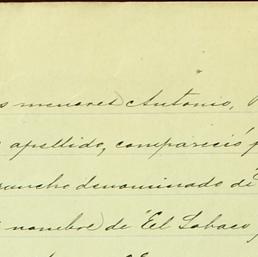 s menores Antonio,
apellido, compareció
rancho denominado de
nombre de "El Sabaco,